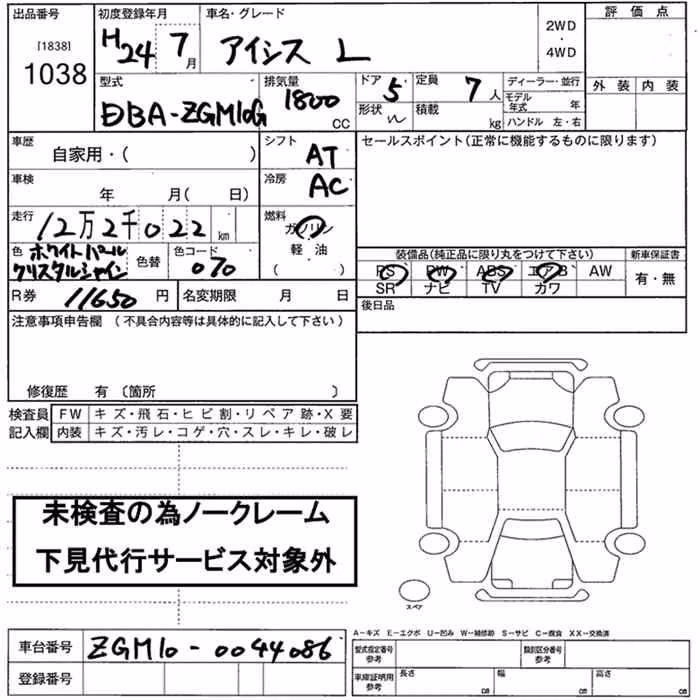 出品番号 [1838] 1038
初度登録年月 H24 7月
車名・グレード アイシス L
2WD・4WD
評価点
外装 内装
型式 DBA-ZGM10G
排気量 1800 CC
ドア 5
形状 W
定員 7人
積載 kg
ディーラー・並行
モデル年式 年
ハンドル 左・右
車歴 自家用・( )
シフト AT
セールスポイント(正常に機能するものに限ります)
車検 年 月( 日)
冷房 AC
走行 12万2千022km
燃料 ガソリン 軽・油 ( )
色 ホワイトパール クリスタルシャイン
色替
色コード 070
装備品(純正品に限り丸をつけて下さい)
新車保証書
PS PW ABS エアB AW
SR ナビ TV カワ
有・無
R券 11650円
名変期限 月 日
後日品
注意事項申告欄 (不具合内容等は具体的に記入して下さい)
修復歴 有 〔箇所 〕
検査員 FW キズ・飛石・ヒビ割・リペア跡・X要
記入欄 内装 キズ・汚レ・コゲ・穴・スレ・キレ・破レ
未検査の為ノークレーム
下見代行サービス対象外
スペア
A-キズ E-エクボ U-凹み W-補修跡 S-サビ C-腐食 XX-交換済
車台番号 ZGM10-0044086
型式指定番号 参考
類別区分番号 参考
登録番号
車庫証明用 参考
長さ cm
幅 cm
高さ cm